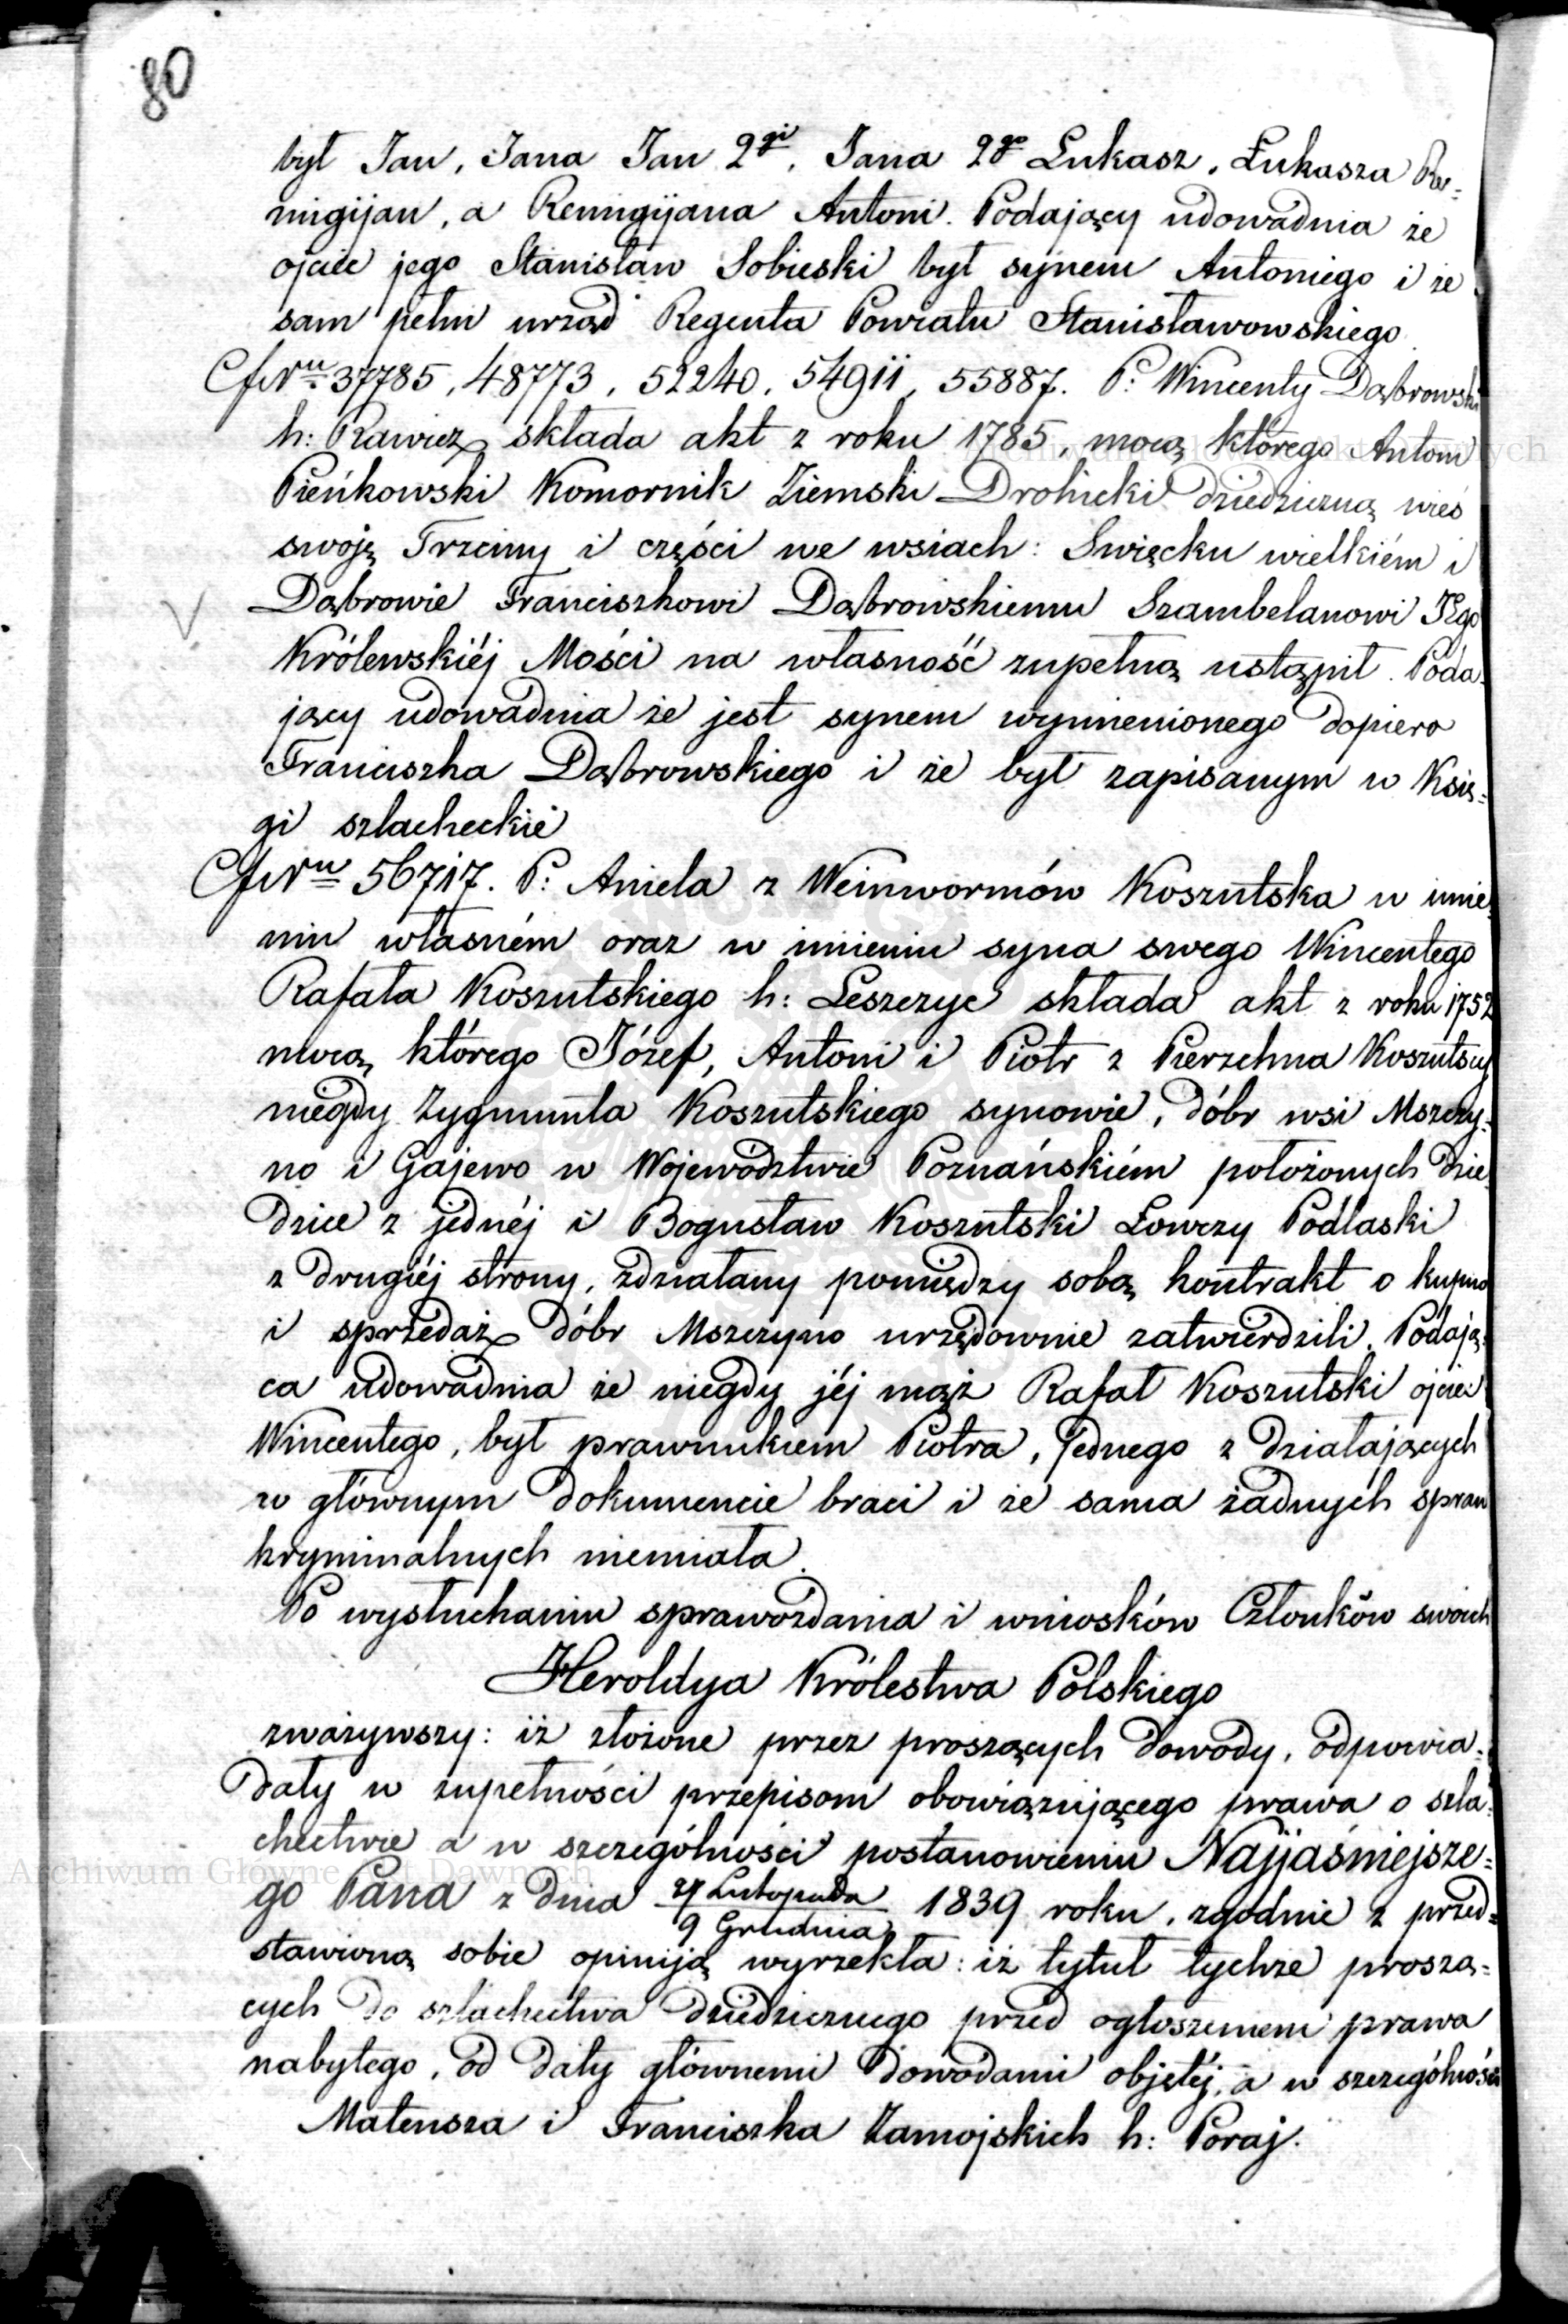 80
był Jan, Jana Jan 2gi, Jana 2go Łukasz, Łukasza Re=
migijan, a Remigijana Antoni. Podający udowadnia że
ojciec jego Stanisław Sobieski był synem Antoniego i że
sam pełni urząd Regenta Powiatu Stanisławowskiego.
37785, 48773, 52240, 54911, 55887. P: Wincenty Dąbrowski
h: Rawicz składa akt z roku 1785, mocą którego Antoni
Pieńkowski Komornik Ziemski Drohicki dziedziczną wieś
swoję Trzciny i części we wsiach: Swięcku wielkiém i
Dąbrowie Franciszkowi Dąbrowskiemu Szambelanowi JEgo
Królewskiéj Mości na własność zupełną ustąpił. Poda=
jący udowadnia że jest synem wymienionego dopiero
Franciszka Dąbrowskiego i że był zapisanym w Księ=
gi szlacheckie
56717. P: Aniela z Weinwormów Koszutska w imie=
niu własném oraz w imieniu syna swego Wincentego
Rafała Koszutskiego h: Leszczyc składa akt z roku 1752
mocą którego Józef, Antoni i Piotr z Pierzchna Koszutscy
niegdy Zygmunta Koszutskiego synowie, dóbr wsi Mszczy=
no i Gajewo w Województwie Poznańskiém położonych dzie=
dzice z jednéj i Bogusław Koszutski Łowczy Podlaski
z drugiéj strony, zdziałany pomiędzy sobą kontrakt o kupno
i sprzedaż dóbr Mszczyno urzędownie zatwierdzili. Podają=
ca udowadnia że niegdy jéj mąż Rafał Koszutski ojciec
Wincentego, był prawnukiem Piotra, jednego z działających
w głównym dokumencie braci i że sama żadnych spraw
kryminalnych niemiała.
Po wysłuchaniu sprawozdania i wniosków Członków swoich
Heroldya Królestwa Polskiego
zważywszy: iż złożone przez proszących dowody, odpowia=
dały w zupełności przepisom obowiązującego prawa o szla=
chectwie a w szczególności postanowieniu Najjaśniejsze=
go Pana z dnia 27 Listopada / 9 Grudnia 1839 roku, zgodnie z przed=
stawioną sobie opiniją wyrzekła: iż tytuł tychże proszą=
cych do szlachectwa dziedzicznego przed ogłoszeniem prawa
nabytego, od daty głównemi dowodami objętéj, a w szczególności
Mateusza i Franciszka Zamojskich h: Poraj.
Archiwum Główne Akt Dawnych